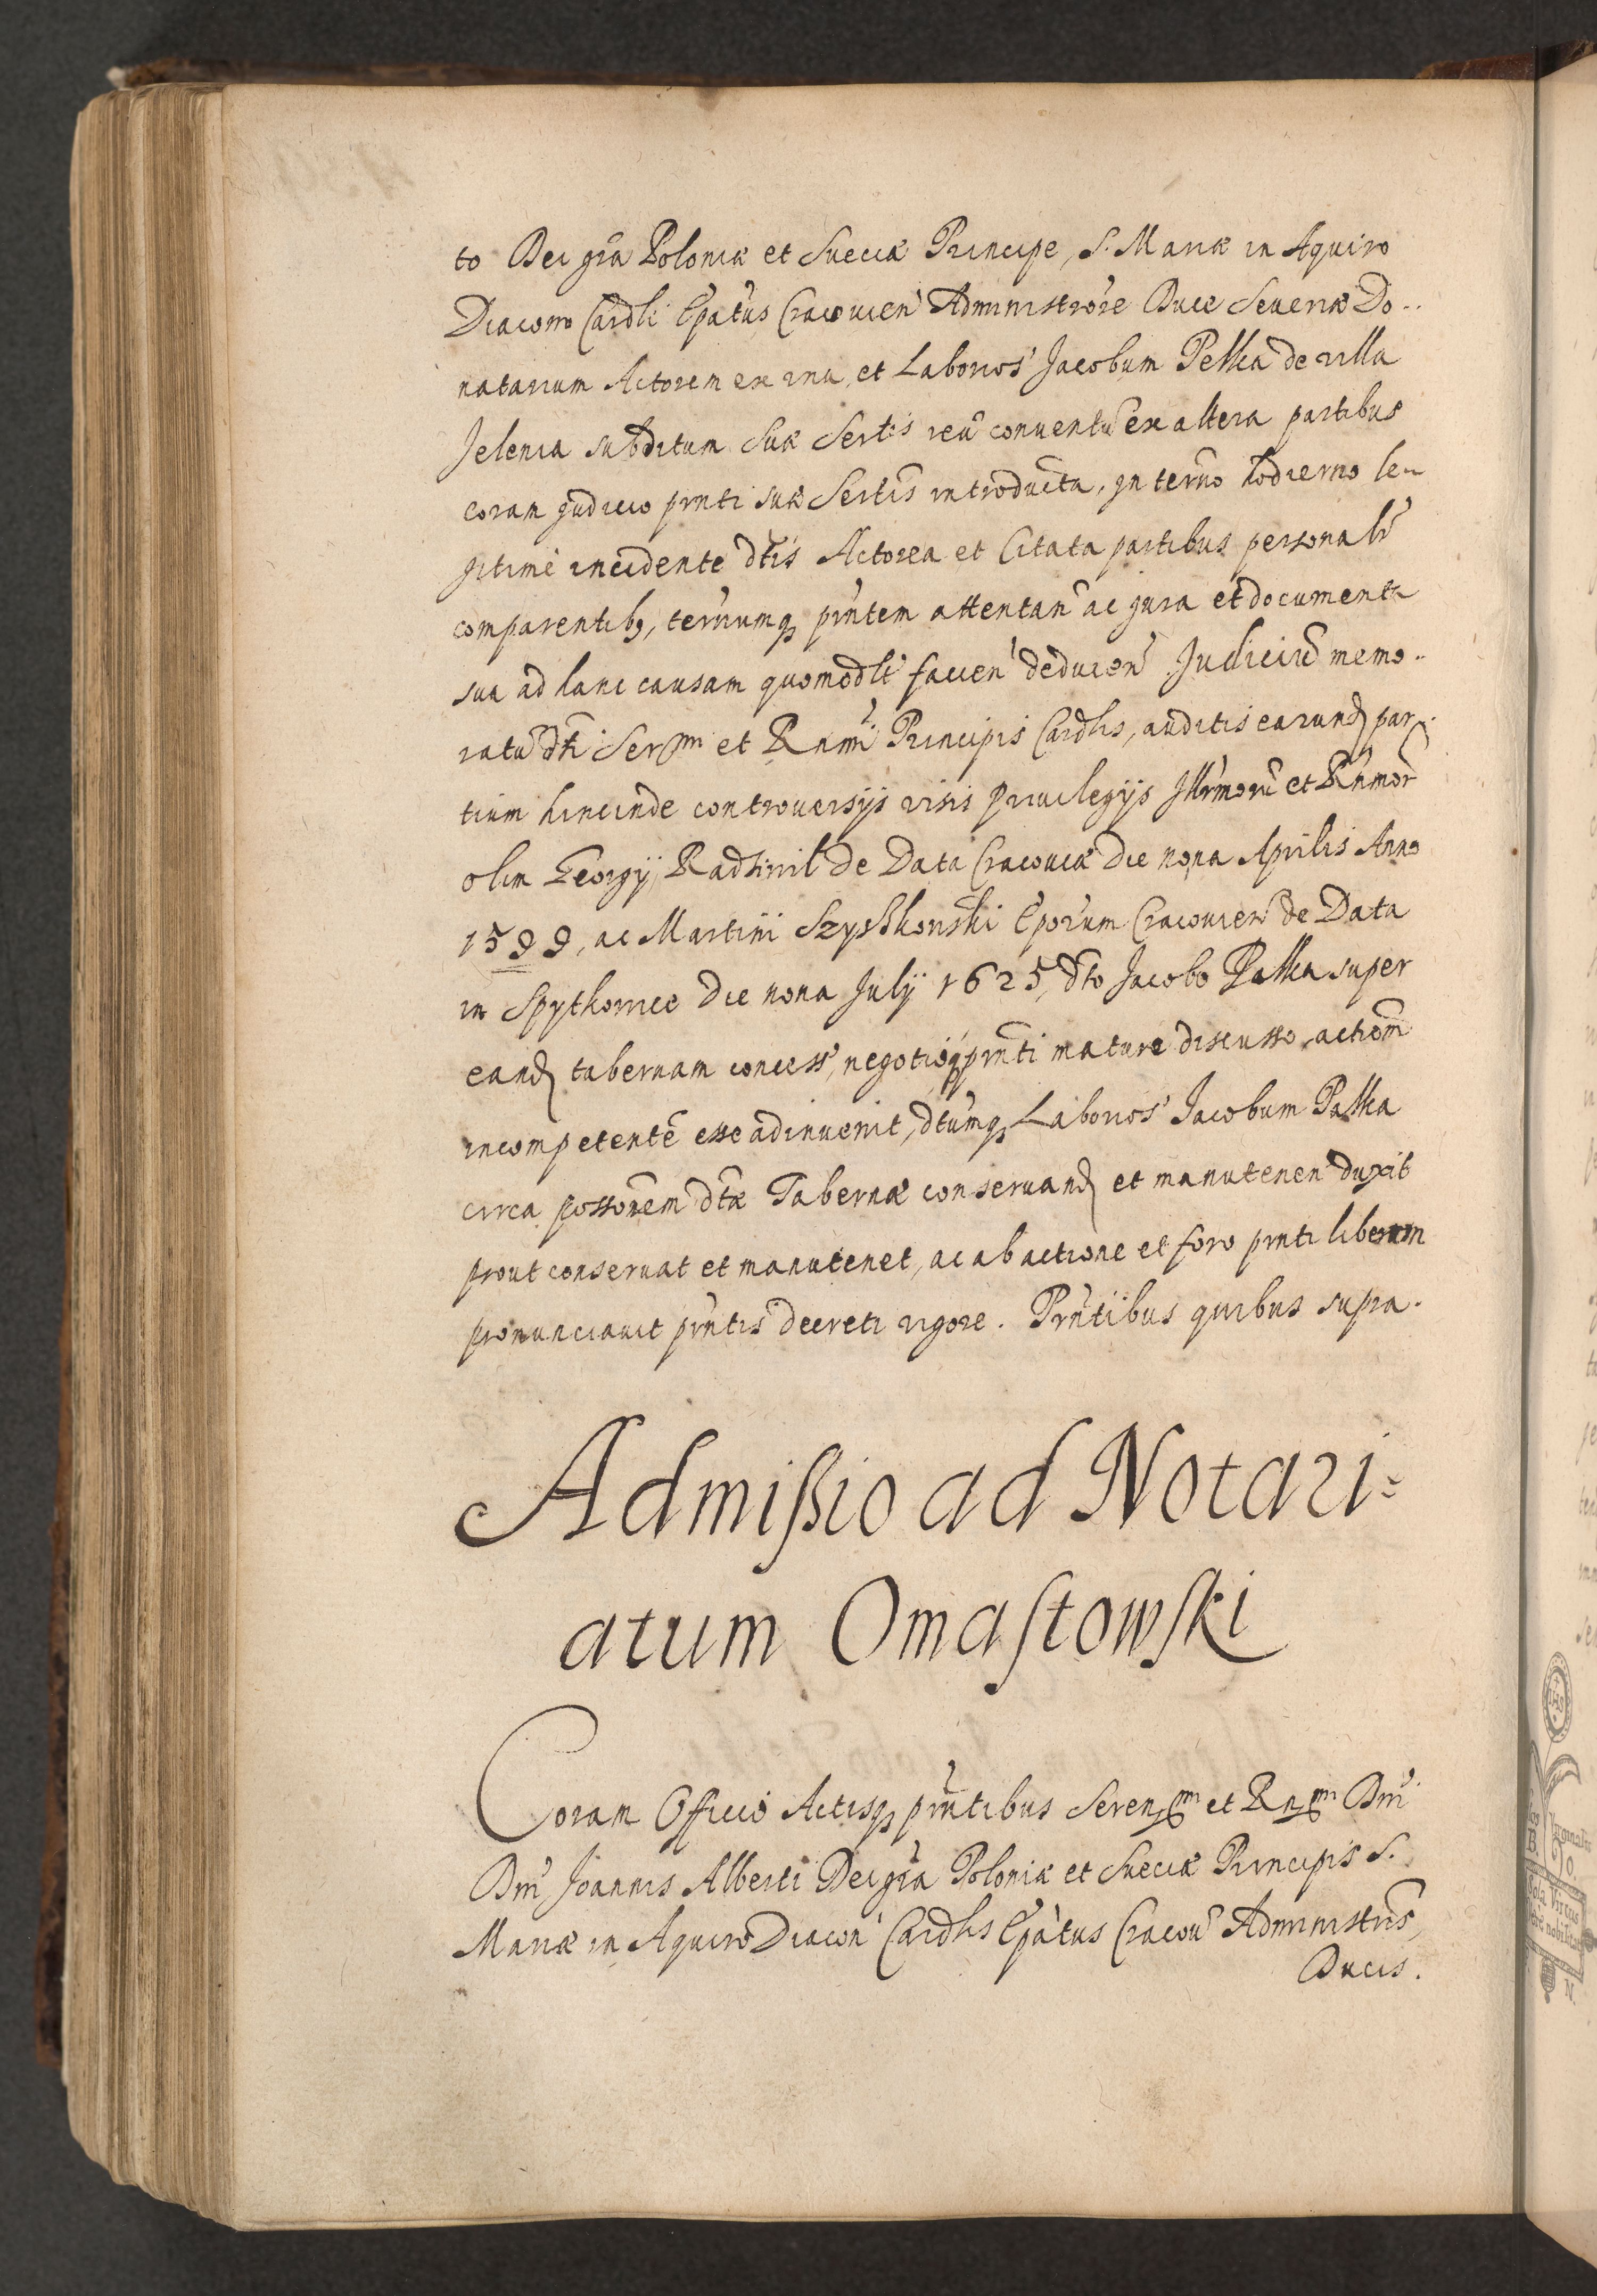 to Dei gr̃a Poloniæ et Sueciæ Principe, S. Mariæ in Aquiro
Diacono Cardli Ep̃atus Cracouien̄ Administrõre Duce Seueriæ Do-
natarium Actorem ex una, et Laborios' Jacobum Pełka de villa
Jelenia subditum Suæ Sertis reũ conuentũ ex altera partibus
coram judicio pr̃nti suæ Sertis introducta, in ter̃no hodierno le-
gitimè incidente dc̃tis Actorea et Citata partibus personalr̃
comparentibq, ter̃numq pr̃ntem attentan̄ ac jura et documenta
sua ad hanc causam quomodlt facien̄ deducen̄ Judiciũ memo-
ratũ dti Serm̃ et Rnmi Principis Cardlis, auditis earund par-
tium hincinde controuersijs visis priuilegijs Illr̃morũ et Rn̄mor̃
olim Georgij Radziuil de Data Cracouiæ die nona Aprilis Anno
1599, ac Martini Szyszkowski Ep̃orum Cracouien̄ de Data
in Spytkowice die nona July 1625, dto Jacobo Pałka super
eand tabernam concess', negotioq pr̃nti mature discusso, actiom̃
incompetentẽ esse adinuenit, dtumq Laborios' Jacobum Pałka
circa possonem dtæ Tabernæ conseruand et manutenen̄ duxit
prout conseruat et manutenet, ac ab actione et foro pr̃nti liberum
pronunciauit pr̃ntis decreti vigore. Pr̃ntibus quibus supra.
Admißio ad Notari=
atum Omastowski
Coram Officio Actisq pr̃ntibus Serenssmi et Rnssmi Dn̄i
Dn̄i Joannis Alberti Dei gr̃a Poloniæ et Sueciæ Principis S.
Mariæ in Aquiro Diacon̄ Cardlis Ep̃atus Cracou̅ Administris,
Ducis.